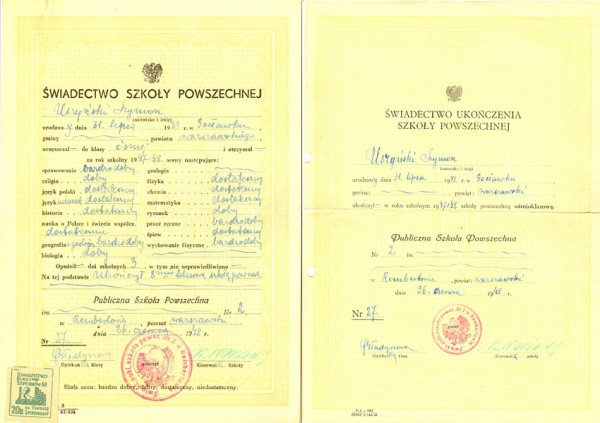 ŚWIADECTWO SZKOŁY POWSZECHNEJ
Uszyński Szymon
(nazwisko i imię)
urodzony dnia 31. lipca 1933 r. w Gocławku
gminy powiatu warszawskiego
uczęszczał do klasy ósmej i otrzymał
za rok szkolny 1947/48 oceny następujące:
sprawowanie bardzo dobry
religia dobry
język polski dostateczny
język dostateczny
historia dostateczny
nauka o Polsce i świecie współcz.
dostateczne
geografia bardzo dobry
biologia dobry
geologia
fizyka dostateczny
chemia dostateczny
matematyka dostateczny
rysunek dobry
prace ręczne bardzo dobry
śpiew dostateczny
wychowanie fizyczne bardzo dobry
Opuścił dni szkolnych 3, w tym nie usprawiedliwiono
Na tej podstawie ukończył
Publiczna Szkoła Powszechna
im. Nr 2
w Rembertowie, powiat warszawski
dnia 26 czerwca 1948 r.
Nr 27
Opiekun klasy
pieczęć
Kierownik Szkoły
Skala ocen: bardzo dobry, dobry, dostateczny, niedostateczny.
ŚWIADECTWO UKOŃCZENIA
SZKOŁY POWSZECHNEJ
Uszyński Szymon
(nazwisko i imię)
urodzony dnia 31. lipca 1933 w Gocławku
gmina: powiat: warszawski
ukończył w roku szkolnym 1947/48 szkołę powszechną ośmioklasową.
Publiczna Szkoła Powszechna
Nr 2
im.
w Rembertowie, powiat: warszawski
dnia 26 czerwca 1948 r.
Nr 27
Opiekun klasy
Kierownik szkoły